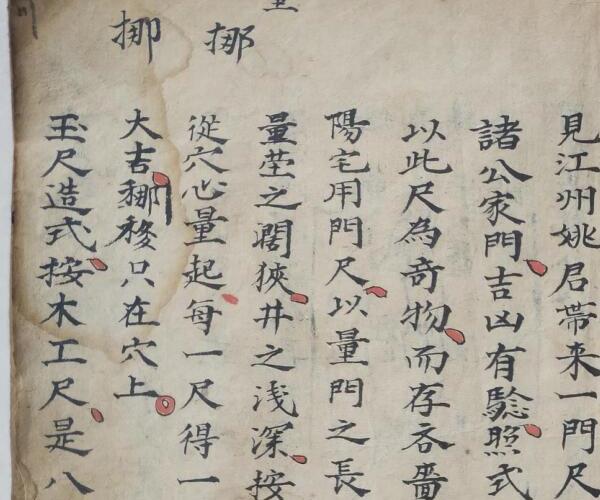 見江州姚君帶来一門尺
諸公家門吉凶有騐照式
以此尺為奇物而存吝嗇
陽宅用門尺以量門之長
量茔之濶狹井之淺深按
從穴心量起每一尺得一
挪
大吉挪移只在穴上
挪
玉尺造式按木工尺是八